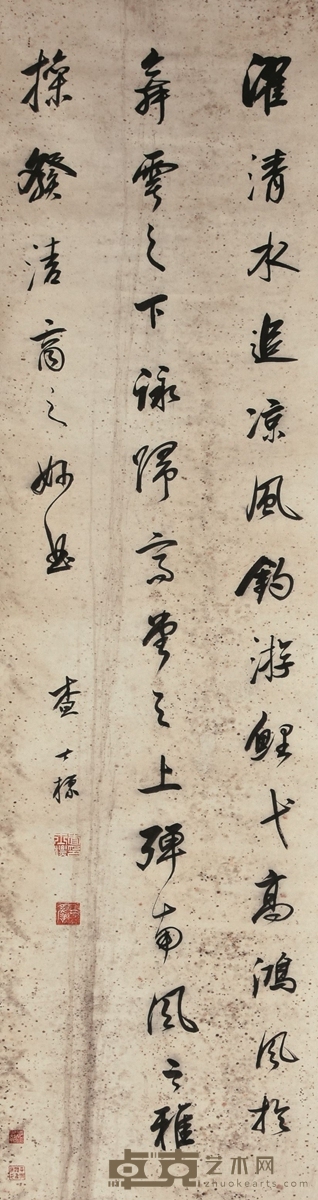 濯清水追凉風釣游鯉弋高鴻風於
舞雩之下詠歸高堂之上彈南風之雅
操發清商之妙曲
查士標
卓克艺术网
zhuokearts.com